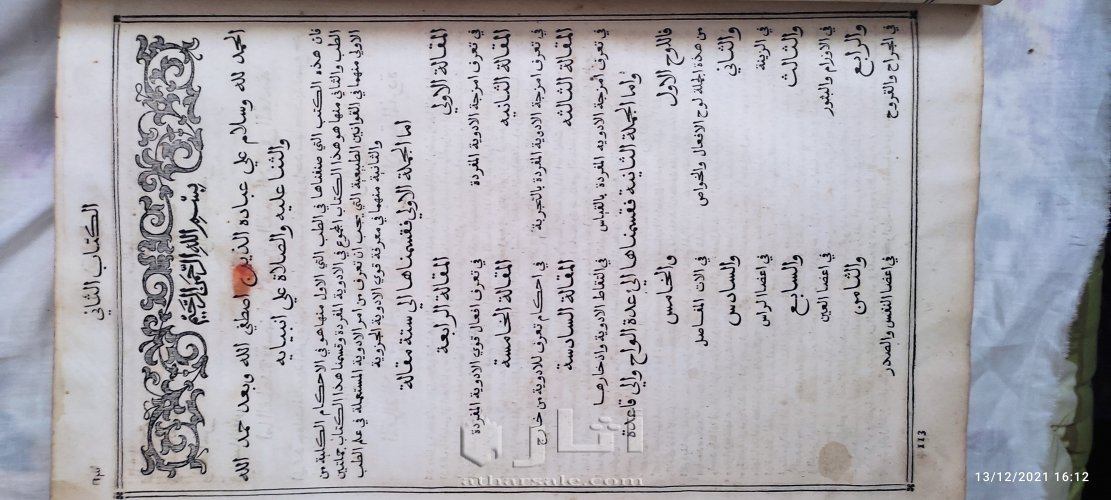 الكتاب الثاني
بسم الله الرحمن الرحيم
الحمد لله وسلام علي عباده الذين اصطفي الله وبعد حمد الله
والثنا عليه والصلاة علي انبيايه
فان هذه الكتب التي صنفناها في الطب التي الاول منها هو في الاحكام الكلية من
الطب والثاني منها هو هذا الكتاب المجموع في الادوية المفردة وقسمنا هذا الكتاب جملتين
الاولي منهما في القوانين الطبيعية التي يجب ان تعرف من امر الادوية المستعملة في علم الطب
والثانية منهما في معرفة قوي الادوية الجزوية
اما الجملة الاولي فقسمناها الي ستة مقالة
المقالة الاولي المقالة الرابعة
في تعرف امزجة الادوية المفردة في تعرف افعال قوي الادوية المفردة
المقالة الثانيه المقالة الخامسة
في تعرف امزجة الادوية المفردة بالتجربة في احكام تعرف للادوية من خارج
المقالة الثالثه المقالة السادسة
في تعرف امزجة الادويه المفردة بالقياس في التقاط الادوية وادخارها
واما الجملة الثانية فقسمناها الي عدة الواح والي قاعدة
فاللوح الاول والخامس
من هذة الجملة لوح الافعال والخواص في الات المفاصل
والثاني والسادس
في الزينة في اعضا الراس
والثالث والسابع
في الاورام والبثور في اعضا العين
والرابع والثامن
في الجراح والقروح في اعضا النفس والصدر
113
آثار
atharsale.com
13/12/2021 16:12